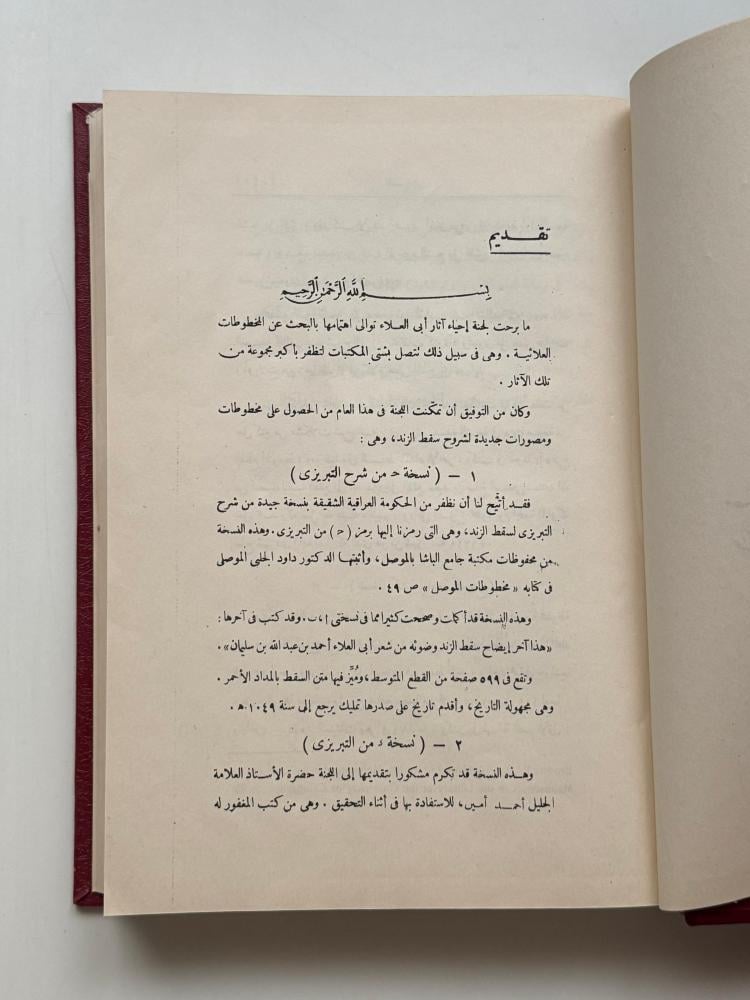 تقديم
بسم الله الرحمن الرحيم
ما برحت لجنة إحياء آثار أبى العلاء توالى اهتمامها بالبحث عن المخطوطات
العلائية . وهى فى سبيل ذلك تتصل بشتى المكتبات لتظفر بأكبر مجموعة من
تلك الآثار .
وكان من التوفيق أن تمكّنت اللجنة فى هذا العام من الحصول على مخطوطات
ومصورات جديدة لشروح سقط الزند، وهى :
١ – ( نسخة ح من شرح التبريزى )
فقد أتيح لنا أن نظفر من الحكومة العراقية الشقيقة بنسخة جيدة من شرح
التبريزى لسقط الزند، وهى التى رمزنا إليها برمز ( ح ) من التبريزى . وهذه النسخة
من محفوظات مكتبة جامع الباشا بالموصل، وأثبتها الدكتور داود الجلبى الموصلى
فى كتابه « مخطوطات الموصل » ص ٤٩ .
وهذه النسخة قد أكملت وصححت كثيرا مما فى نسختى ا، ب . وقد كتب فى آخرها :
«هذا آخر إيضاح سقط الزند وضوئه من شعر أبى العلاء أحمد بن عبد الله بن سليمان» .
وتقع فى ٥٩٩ صفحة من القطع المتوسط، ومُيِّز فيها متن السقط بالمداد الأحمر .
وهى مجهولة التاريخ، وأقدم تاريخ على صدرها تمليك يرجع إلى سنة ١٠٤٩ هـ .
٢ – ( نسخة د من التبريزى )
وهذه النسخة قد تكرم مشكورا بتقديمها إلى اللجنة حضرة الأستاذ العلامة
الجليل أحمد أمين، للاستفادة بها فى أثناء التحقيق . وهى من كتب المغفور له